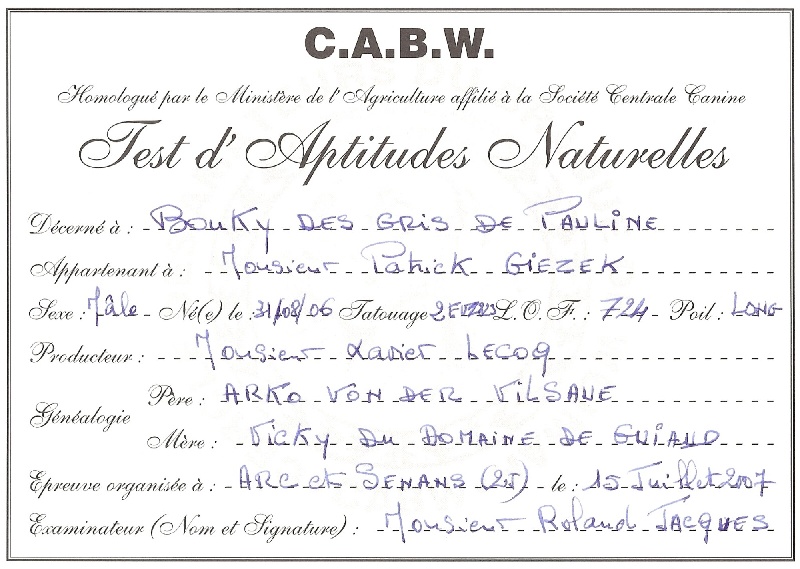 C.A.B.W.
Homologué par le Ministère de l'Agriculture affilié à la Société Centrale Canine
Test d'Aptitudes Naturelles
Décerné à : BOUKY DES GRIS DE PAULINE
Appartenant à : Monsieur Patrick GIEZEK
Sexe : Mâle - Né(e) le : 31/08/06 Tatouage L.O.F. : 724 - Poil : LONG
Producteur : Monsieur Xavier LECOQ
Généalogie
Père : ARKO VON DER VILSAUE
Mère : VICKY DU DOMAINE DE
Epreuve organisée à : ARC et SENANS (25) - le : 15 Juillet 2007
Examinateur (Nom et Signature) : Monsieur Roland JACQUES